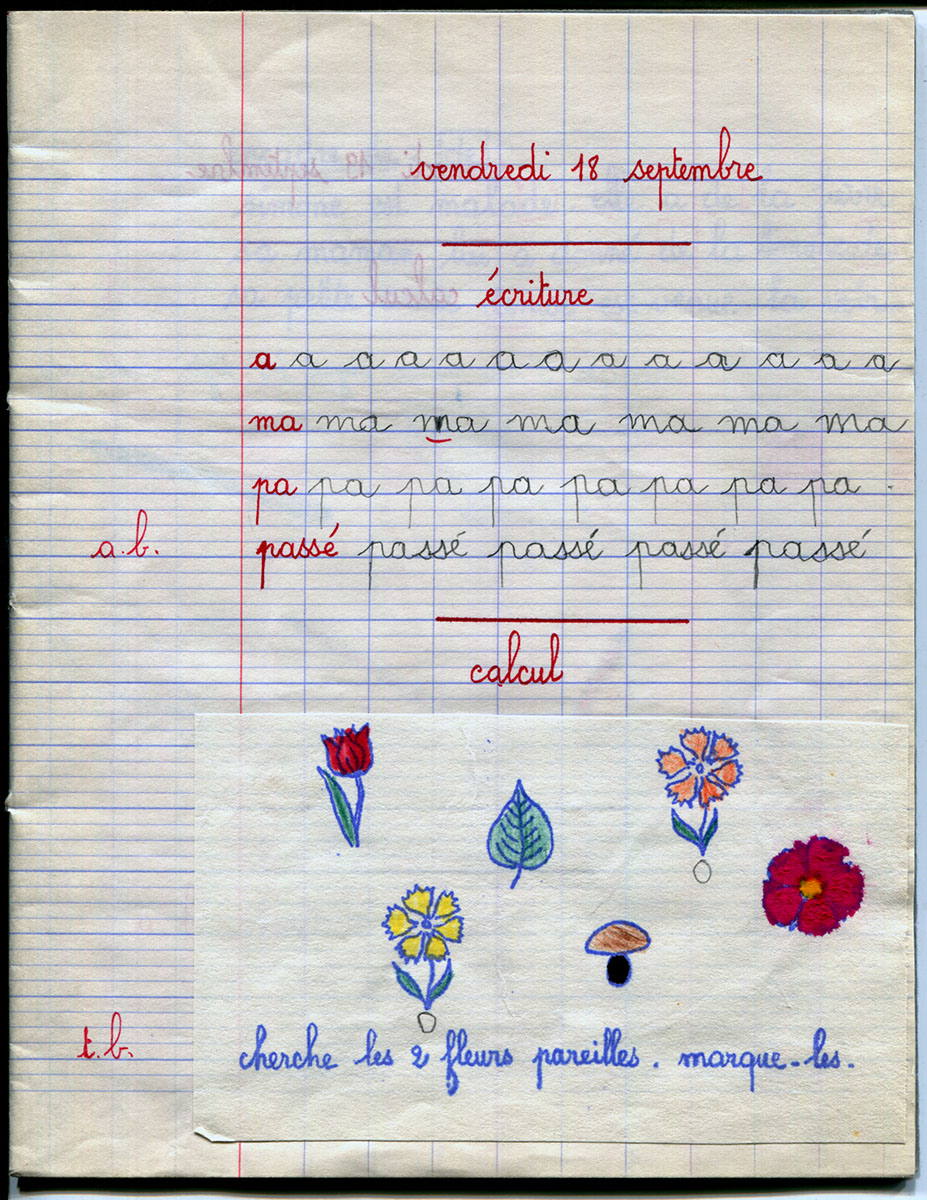 vendredi 18 septembre
écriture
a a a a a a a a a a a a a
ma ma ma ma ma ma ma
pa pa pa pa pa pa pa pa .
a.b. passé passé passé passé passé
calcul
t.b. cherche les 2 fleurs pareilles. marque-les.